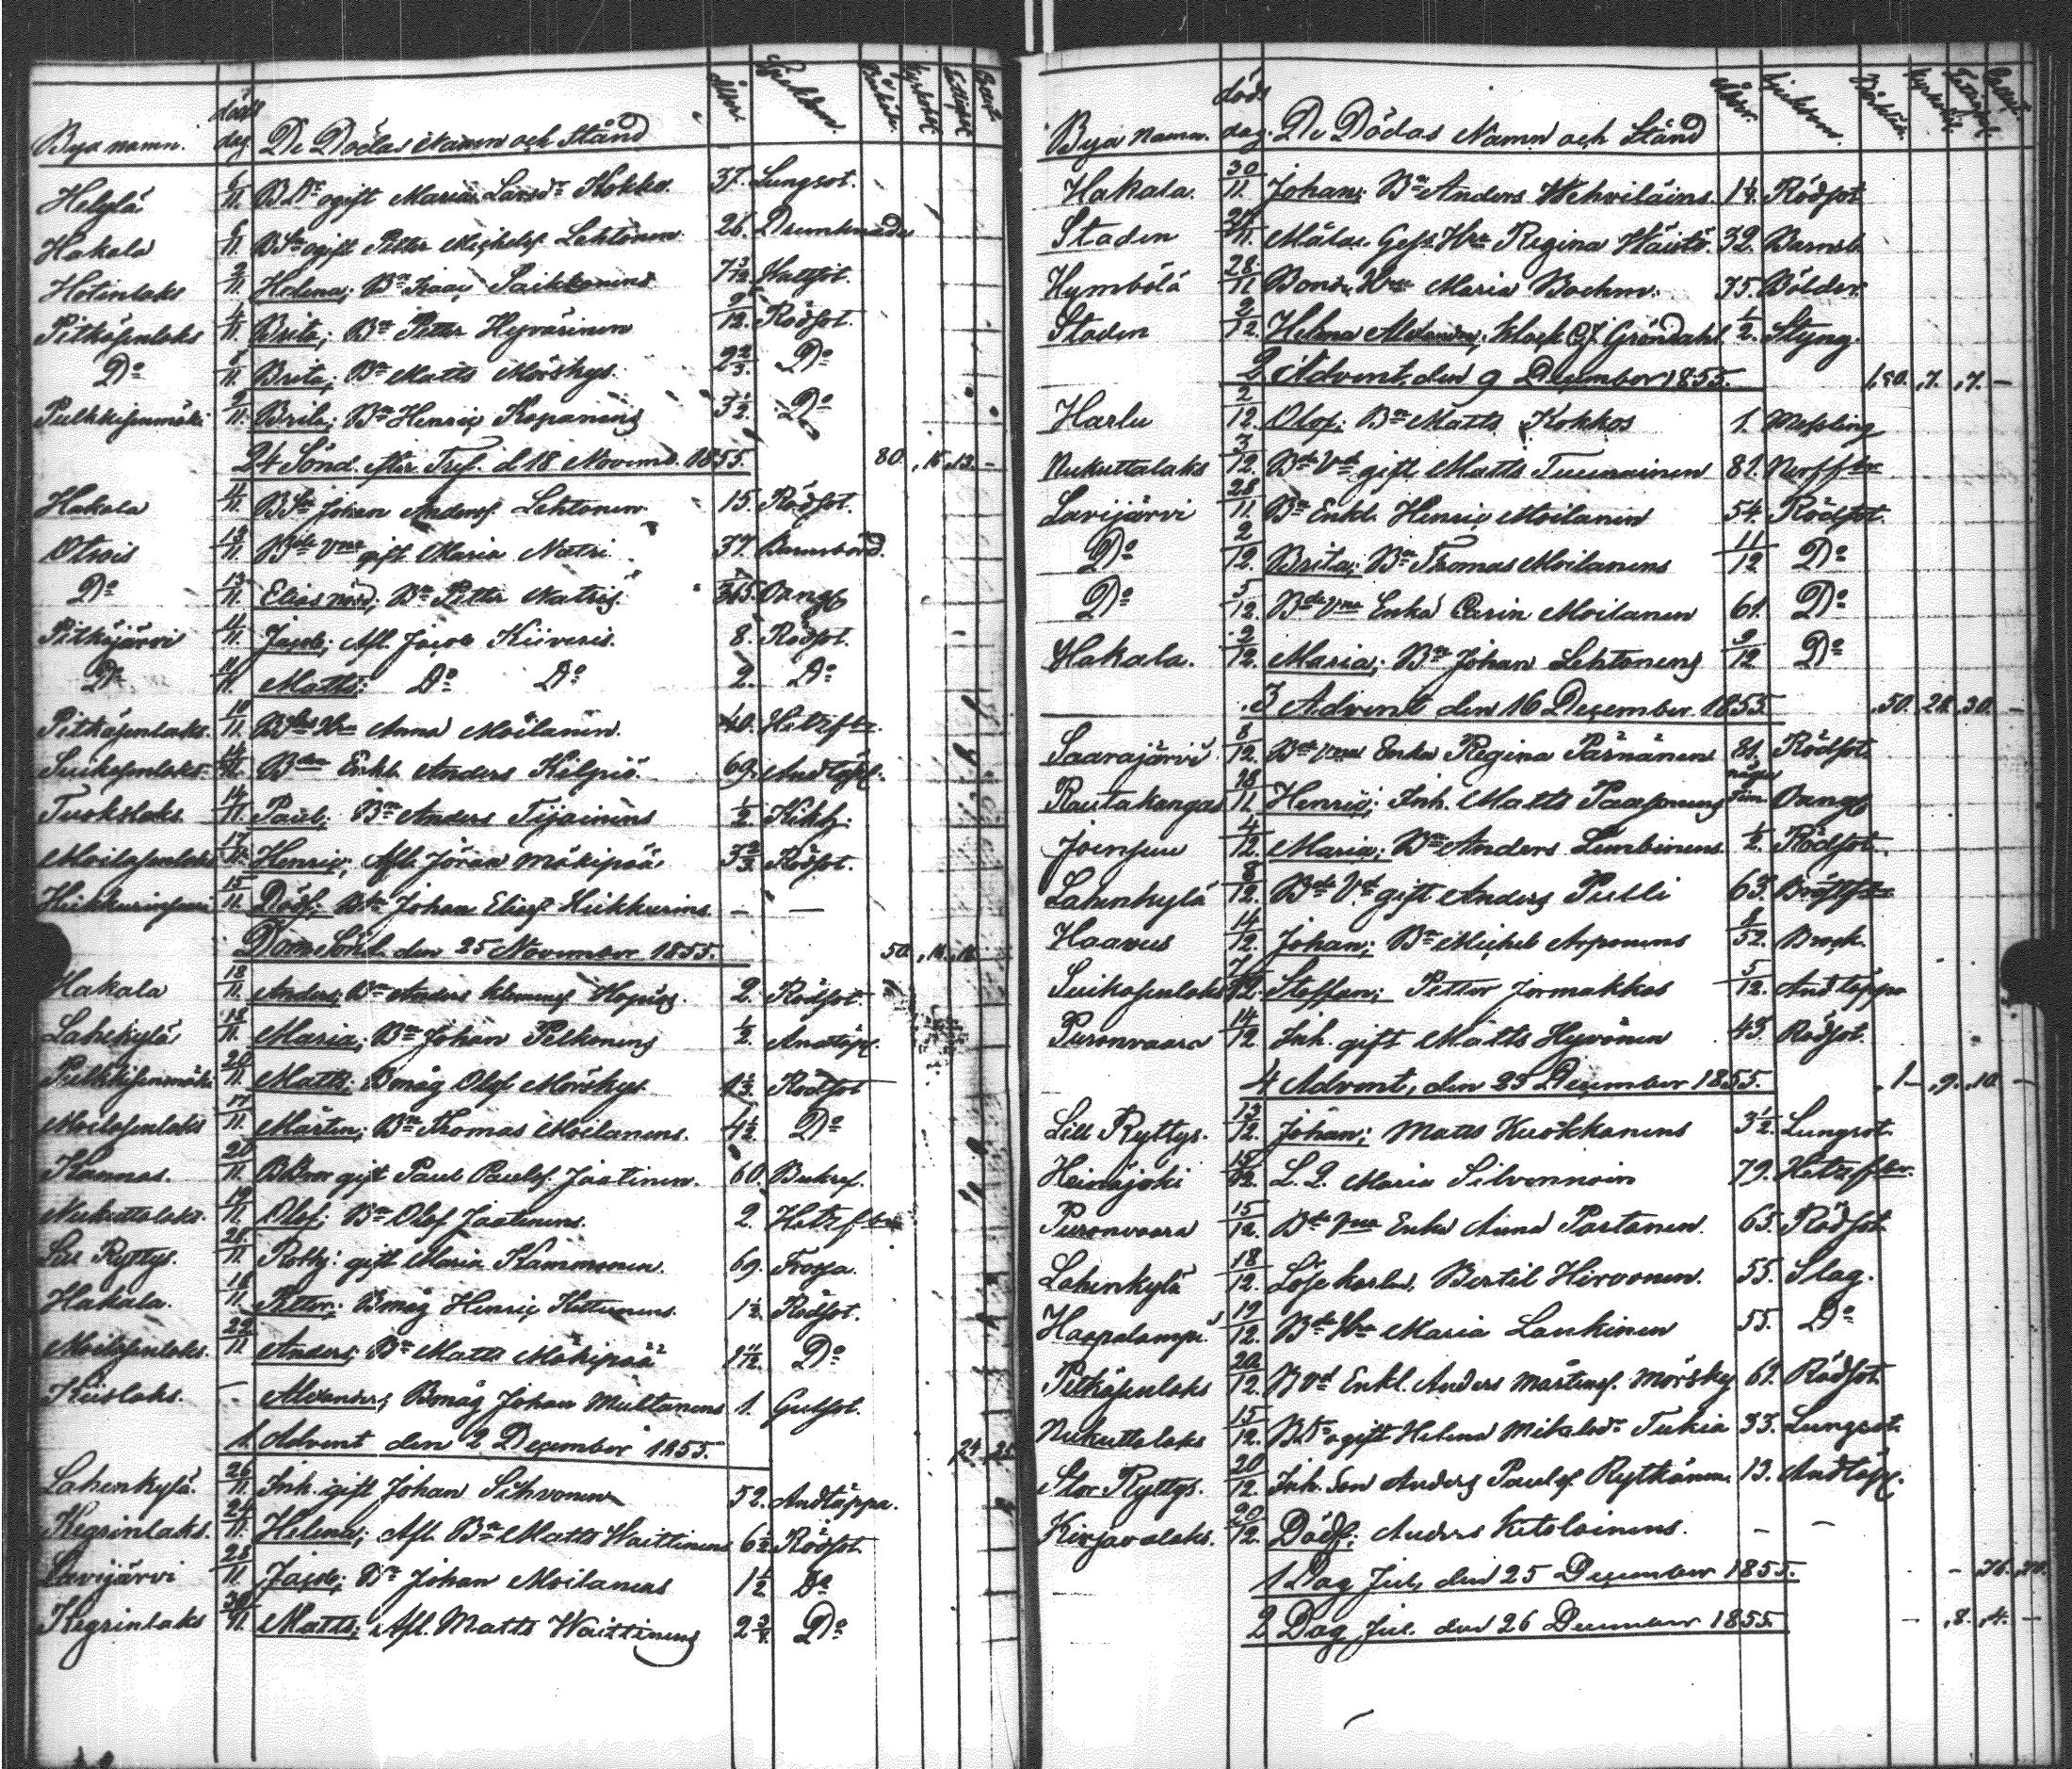 Bya namn. döds dag De Dödas Namn och Stånd Ålder Sjukdom.
Helylä 6/11 BDr ogift Maria Larsdr Kokko 37. Lungsot.
Hakala 6/11 BSn ogift Petter Michelss. Lehtonen 26. Drunknade
Hotinlaks 2/11 Helena; Bn Isaac Paikkonens 7 3/12 Hallsot.
Pitkäsenlaks 4/11 Brita; Bn Petter Hyvärinen 9/12. Rödsot.
Do 8/11 Brita; Bn Matts Mörskys. 2 2/3. Do
Pulkkisenmäki 9/11. Brita; Bn Henric Kopanens 3 1/2. Do
24 Sönd. efter Tref. d 18 Novemb. 1855. 80. ,15. ,13. -
Hakala 4/11 BSn Johan Anderss. Lehtonen. 15. Rödsot.
Otsois 13/11 Bde Vna gift Maria Natri 37. Barnsbörd.
Do 13/11 Elias nöd; Bn Petter Natris. 3/65. Oangs
Pitkäjärvi 4/11 Jacob; Afl. Jacob Kiiveris. 8. Rödsot.
Do 11/11. Matts; Do Do 2. Do
Pitkäsenlaks. 10/11. Bdes Hru Anna Moilanen. 40. Hetzsbr.
Suikasenlaks. 14/11. Bden Enkl. Anders Kilpiö. 69. Andtäpp.
Tuokslaks. 14/11. Paul; Bn Anders Tijainens 1/2. Kikh.
Moilasenlaks 17/11. Henric; Afl. Jöran Mäkipää 3 2/3. Rödsot.
Hiekkurinsuu 15/11 Dödf; Bn Johan Eliass. Hiekkurins. – —
Doms Sönd. den 25 November 1855. 50. ,16. ,16.
Hakala 18/11. Anders; Bn Anders Klemetss. 2. Rödsot.
Lahenkylä 18/11. Maria; Bn Johan Pelkonens 1/2. Andtäpp.
Pulkkisenmäki 20/11. Matts; Bmåg Olof Mörskys 1 1/3. Rödsot
Moilasenlaks 17/11. Mårten; Bn Thomas Moilanens. 4 1/2. Do
Kannas. 20/11. BBror gift Paul Paulss. Jaatinen. 60. Bukref.
Nukuttalaks. 19/11. Olof; Bn Olof Jaatinens. 2. Hetzsbr
Lill Ryttys. 25/11 Rothj: gift Maria Kammonen. 69. Frossa.
Hakala. 16/11 Petter; Bmåg Henric Kettunens. 1 1/2. Rödsot.
Moilasenlaks. 22/11 Anders; Bn Matts Mäkipää 1 11/12. Do
Kiislaks. – Alexander; Bmåg Johan Multanens 1. Gulsot.
1. Advent den 2 December 1855. 24. 25.
Lahenkylä. 26/11 Inh. gift Johan Sihvonen 52. Andtäppa.
Kegrinlaks. 24/11. Helena; Afl. Bn Matts Waittinens 6 1/2. Rödsot.
Lavijärvi 28/11. Jacob; Bn Johan Moilanens 1 1/2 Do
Kegrinlaks 30/11. Matts; Afl. Matts Waittinens 2 3/4. Do
Bya Namn. döds dag. De Dödas Namn och Stånd Ålder. Sjukdom.
Hakala. 30/11. Johan; Bn Anders Wehviläins. 1 1/4. Rödsot
Staden 24/11. Målar Ges. Hru Regina 32. Barnsb.
Hymbölä 28/11 Bond. Hru Maria Boehm. 75. Bölder.
Staden 2/12. Helena Alexandra; Klock. Gröndahl. 1/2. Styng.
2 Advent, den 9 December 1855. 1,80. ,7. ,7. –
Harlu 2/12. Olof; Bn Matts Kokkos 1. Messling
Nukuttalaks 3/12. Bde Vd gift Matts Tuunainen 81. Nerffbr
Lavijärvi 28/11 Bn Enkl. Henric Moilanen 54. Rödsot.
Do 2/12. Brita; Bn Thomas Moilanens 11/12 Do
Do 5/12. Bde Vna Enka Carin Moilanen 61. Do
Hakala. 2/12. Maria; Bn Johan Lehtonens 9/12 Do
3 Advent den 16 December 1855. ,50. ,28. ,30. –
Saarajärvi 8/12. Bde Vna Enka Regina Pärnänen 81. Rödsot.
Rautakangas 28/11 Henric; Inh. Matts Paasonens några tim. Oangs
Joensuu 4/12. Maria; Bn Anders Lembinens. 1/2. Rödsot.
Lahenkylä 8/12. Bde Vd. gift Anders Pulli 63. Bröstsbr
Haavus 14/12. Johan; Bn Michel Arponens 8/52. Brock.
Suikasenlaks 7/12. Steffan; Petter Jormakkas 5/12. Andtäppa
Puronvaara 14/12 Inh. gift Matts Hyvönen 43. Rödsot.
4 Advent, den 23 December 1855. ,1– ,9. ,10. –
Lill Ryttys. 13/12. Johan; Matts Kuokkanens 3 1/2. Lungsot.
Heinäjoki 15/12. L. Q. Maria Silvennoin 79. Hetzsbr.
Puronvaara 15/12. Bde Vna Enka Anna Partanen. 65. Rödsot.
Lahenkylä 18/12. Lösekarlen. Bertil Hirvonen. 55. Slag.
Haapalampi. 19/12. Bde Hru Maria Laukinen 55. Do
Pitkäsenlaks 20/12. BVd Enkl. Anders Mårtenss. Mörsky 61. Rödsot.
Nukuttalaks 15/12. BDr ogift Helena Mikelsdr Tukia 33. Lungsot.
Stor Ryttys. 20/12. Inh. Son Anders Paulss. Rytkönen. 13. Andtäpp.
Kirjavalaks. 20/12. Dödf; Anders Ketolainens. – –
1 Dag Jul, den 25 December 1855. – ,36. ,20.
2 Dag Jul. den 26 December 1855. – ,8. ,4. –